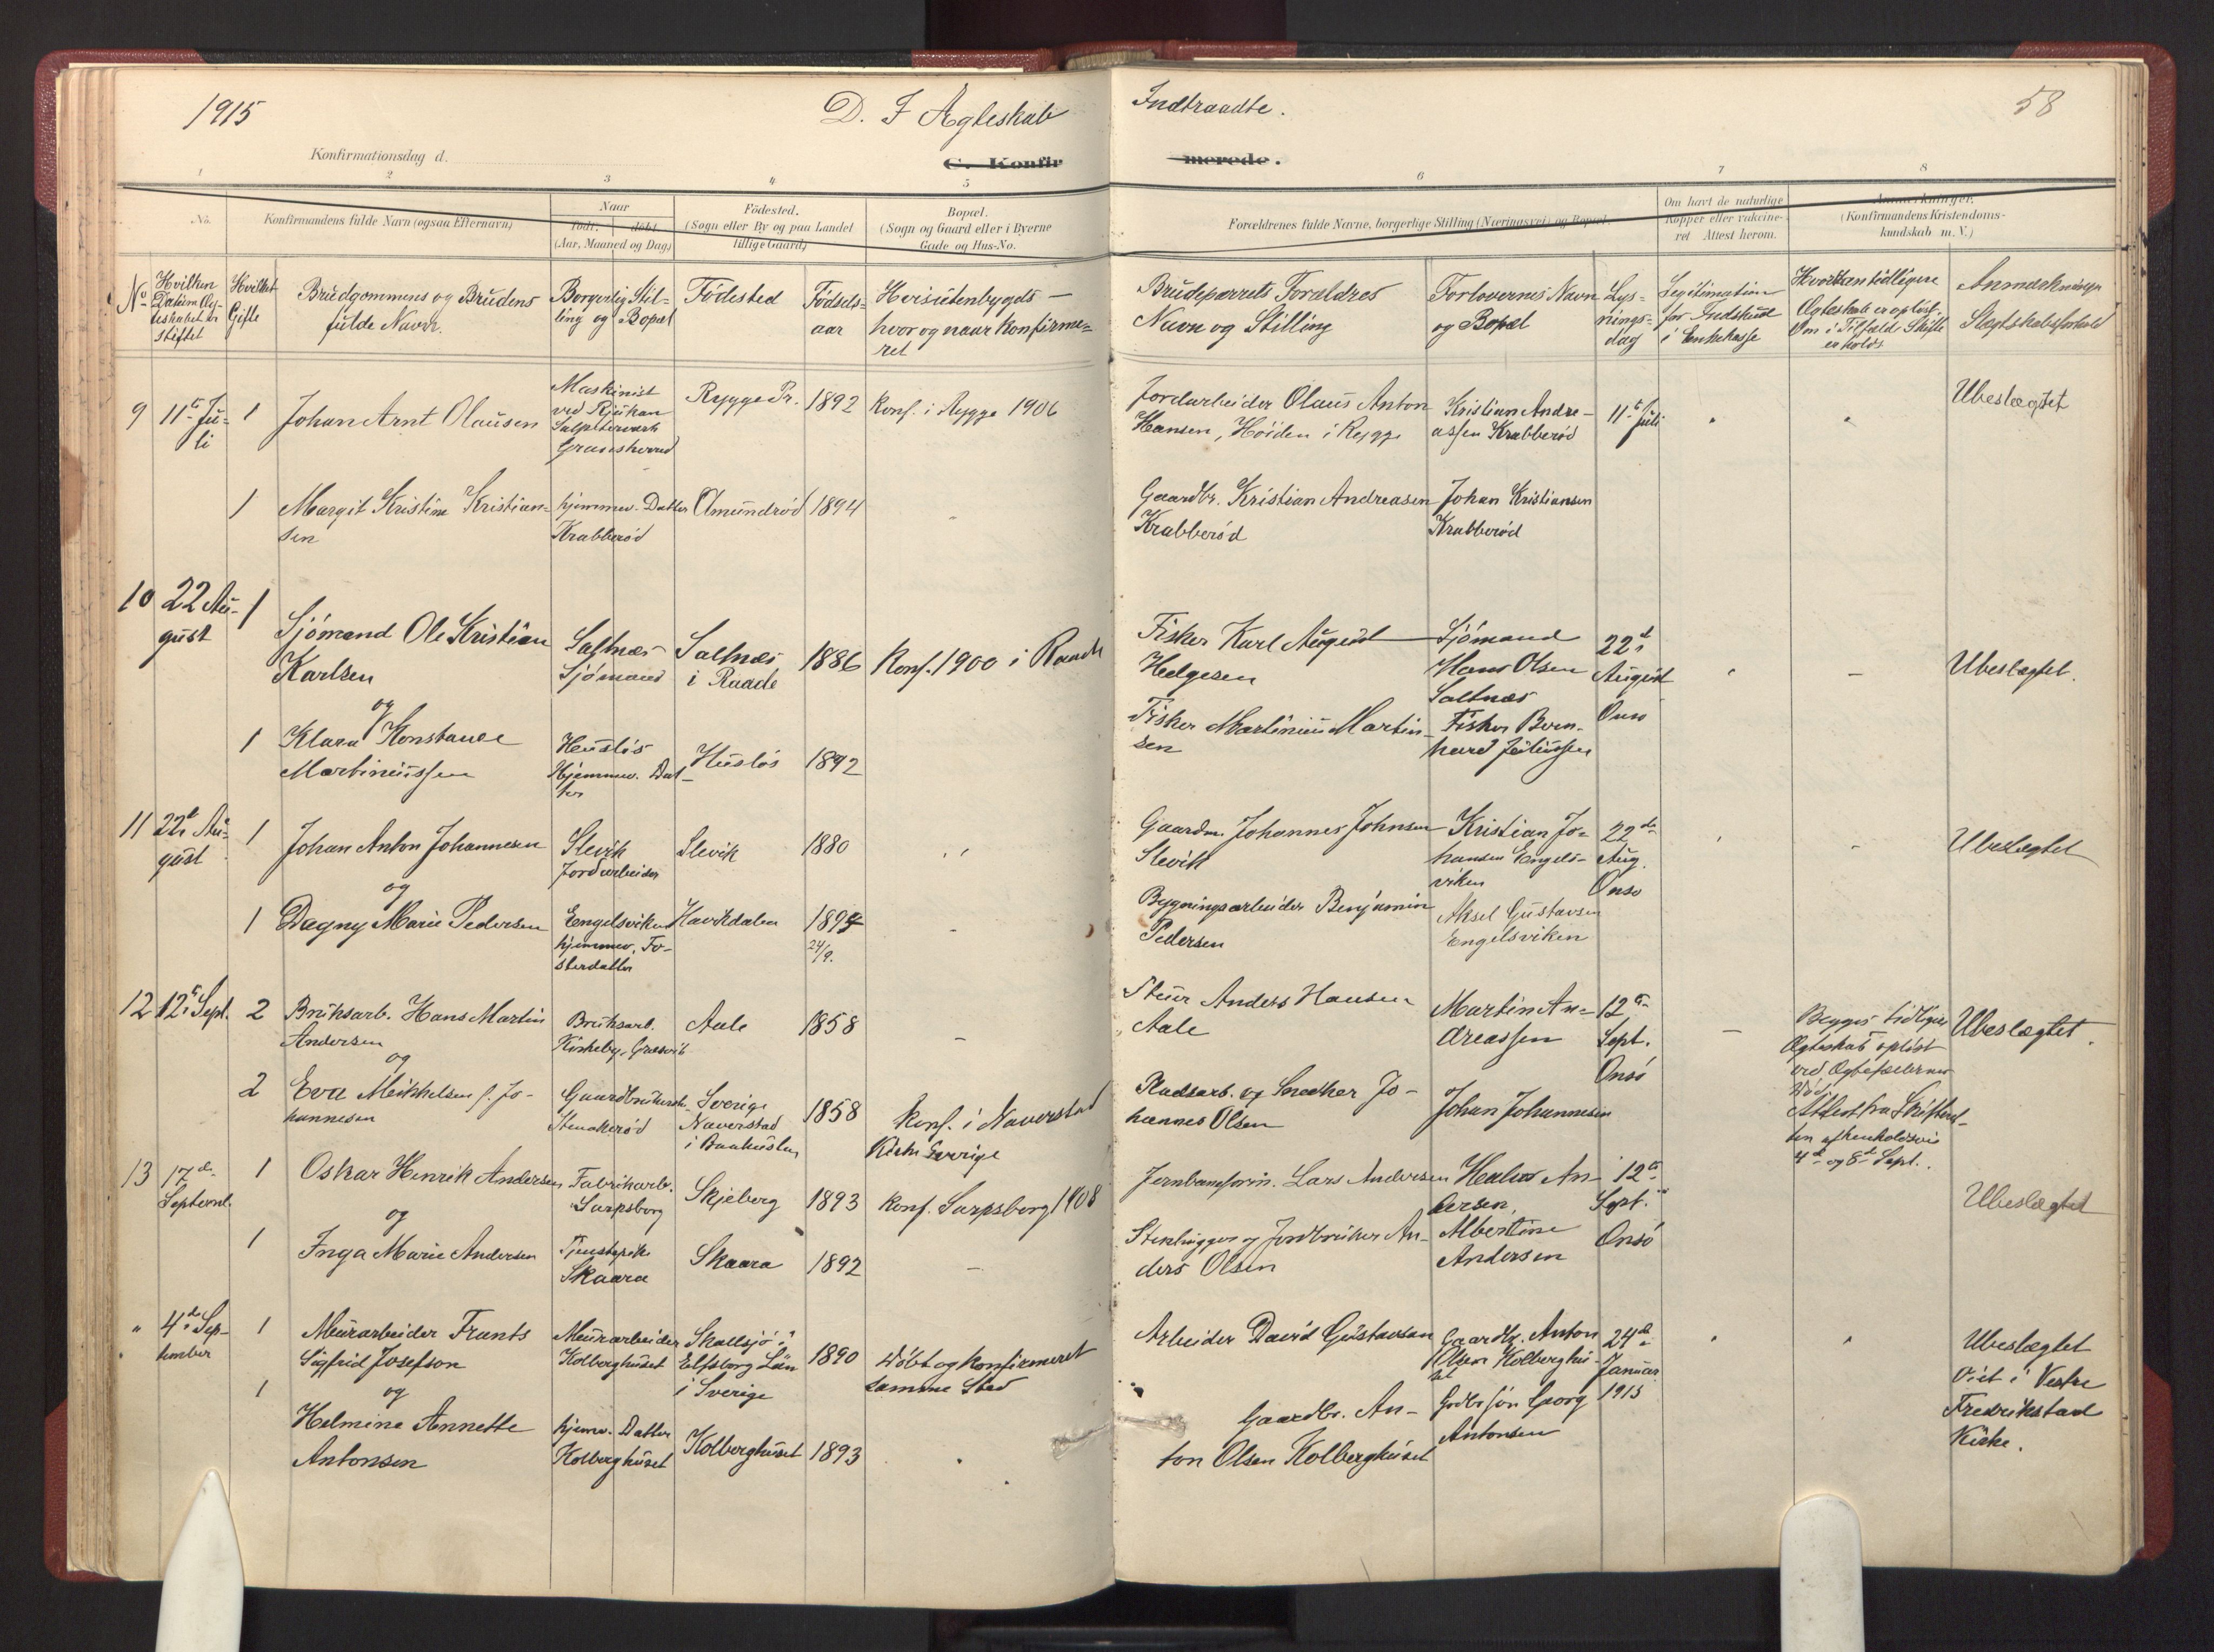 1915
D. I Ægteskab Indtraadte.
58
Konfirmationsdag d.
C. Konfirmerede.
1 2 3 4 5 6 7 8
No.
Konfirmandens fulde Navn (ogsaa Efternavn)
Naar
født. døbt.
(Aar, Maaned og Dag)
Födested.
(Sogn eller By og paa Landet
tillige Gaard)
Bopæl.
(Sogn og Gaard eller i Byerne
Gade og Hus-No.
Forældrenes fulde Navne, borgerlige Stilling (Næringsvei) og Bopæl.
Om havt de naturlige
Kopper eller vakcine-
ret Attest herom.
Anmerkninger,
(Konfirmandens Kristendoms-
kundskab m. V.)
No
Hvilken
Datum Æg-
teskabet er
stiftet
Hvilket
Gifte
Brudgommens og Brudens
fulde Navn.
Borgerlig Stil-
ling og Bopæl
Födested
Födsels-
aar
Hvis udenbygds —
hvor og naar konfirme-
ret
Brudeparrets Forældres
Navn og Stilling
Forlovernes Navn
og Bopæl
Lys-
nings-
dag
Legitimation
for Indskud
i Enkekasse
Hvordan tidligere
Ægteskab er opløst.
Om i Tilfælde Skifte
er holdt
Anmærkninger
Slægtskabsforhold
9
11te Ju-
li
1
Johan Arnt Olausen
Maskinist
ved Rjukan
Salpeterverk
Rygge Pr.
1892
Konf. i Rygge 1906
Jordarbeider Olaus Anton
Hansen, Höiden i Rygge
Kristian Andre-
assen Krabberöd
11te Juli
Ubeslægtet
1
Margit Kristine Kristian-
sen
hjemmev. Datter
Krabberöd
Omundröd
1894
Gaardbr. Kristian Andreasen
Krabberöd
Johan Kristiansen
Krabberöd
10
22 Au-
gust
1
Sjömand Ole Kristian
Karlsen
og
Saltnæs
Sjömand
Saltnæs
i Raade
1886
Konf. 1900 i Raade
Fisker Karl August
Helgesen
Sjömand
Hans Olsen
Saltnæs
22de
August
Onsö
Ubeslægtet.
1
Klara Konstance
Martiniussen
Huslös
Hjemmev. Dat-
ter
Huslös
1892
Fisker Martinius Martin-
sen
Fisker Bern-
hard Juliussen
11
22de Au-
gust
1
Johan Anton Johannesen
og
Slevik
Jordarbeider
Slevik
1880
Gaardm. Johannes Johnsen
Slevik
Kristian Jo-
hansen Engels-
viken
22de
Aug.
Onsö
Ubeslægtet
1
Dagny Marie Pedersen
Engelsviken
hjemmev. Fo-
sterdatter
Haukdalen
1894
24/9.
Bygningsarbeider Benjamin
Pedersen
Aksel Gustavsen
Engelsviken
12
12te Sept.
2
Bruksarb. Hans Martin
Andersen
og
Bruksarb.
Kirkeby, Græsvik
Aale
1858
Anders Hansen
Aale
Martin An-
dreassen
12te
Sept.
Onsö
Begges tidligere
Ægteskab oplöst
ved Ægtefællernes
Död.
Attest fra Skifteret-
ten
4de og 8de Sept.
Ubeslægtet.
2
Eva Mikkelsen f. Jo-
hannesen
Stenakeröd
Sverige
Naverstad
i Baahuslen
1858
Konf. i Naverstad
Kirke Sverige
Pladsarb. og Snedker Jo-
hannes Olsen
Johan Johannesen
13
17de
Septemb.
1
Oskar Henrik Andersen
og
Fabrikarb.
Sarpsborg
Skjeberg
1893
Konf. Sarpsborg 1908
Jernbaneform. Lars Andersen
An-
dersen,
12te
Sept.
Onsö
Ubeslægtet
1
Inga Marie Andersen
Tjenstepike
Skaara
Skaara
1892
Stenhugger og Jordbruker An-
ders Olsen
Albertine
Andersen
4de Sep-
tember
1
Murarbeider Frants
Sigfrid Josefson
og
Murarbeider
Kolberghuset
Skallsjö i
Elfsborg Län
i Sverige
1890
Döbt og konfirmeret
samme Sted
Arbeider David Gustavson
Gaardbr. Anton
Olsen Kolberghu-
set
24de
Januar
1915
Ubeslægtet
Viet i Vestre
Fredrikstad
Kirke.
1
Helmine Annette
Antonsen
hjemv. Datter
Kolberghuset
Kolberghuset
1893
Gaardbr. An-
ton Olsen Kolberghuset
Gdbrsön Georg
Antonsen